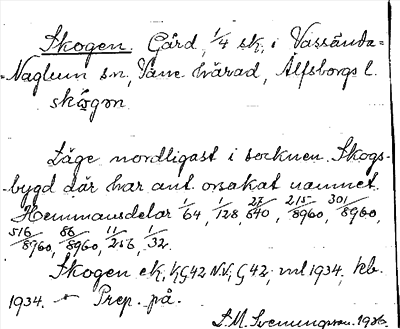 Skogen. Gård, 1/4 sk, i Vassända=
=Naglum sn, Väne härad, Älfsborgs l.
skógən
Läge nordligast i socknen. Skogs-
bygd där har ant. orsakat namnet.
Hemmansdelar 1/64, 1/128, 27/640, 215/8960, 301/8960,
516/8960, 86/8960, 11/256, 1/32.
Skogen ek, G42 NV, G42, ml 1934, kb.
1934. Prep. på.
S.M. Svenungsson. 1936.